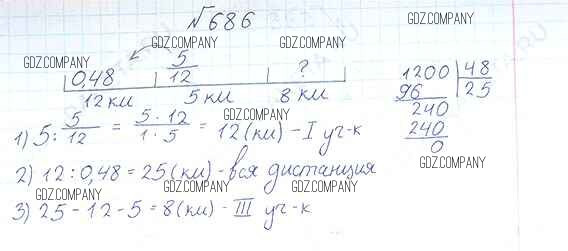 №686
GDZ.COMPANY GDZ.COMPANY GDZ.COMPANY
0,48 5/12 ?
12 км 5 км 8 км
GDZ.COMPANY GDZ.COMPANY
1) 5 : 5/12 = 5 · 12/1 · 5 = 12 (км) - I уч-к
GDZ.COMPANY GDZ.COMPANY
2) 12 : 0,48 = 25 (км) - вся дистанция
GDZ.COMPANY GDZ.COMPANY
3) 25 - 12 - 5 = 8 (км) - III уч-к
GDZ.COMPANY GDZ.COMPANY
1200 48
96 25
240
240
0
GDZ.COMPANY